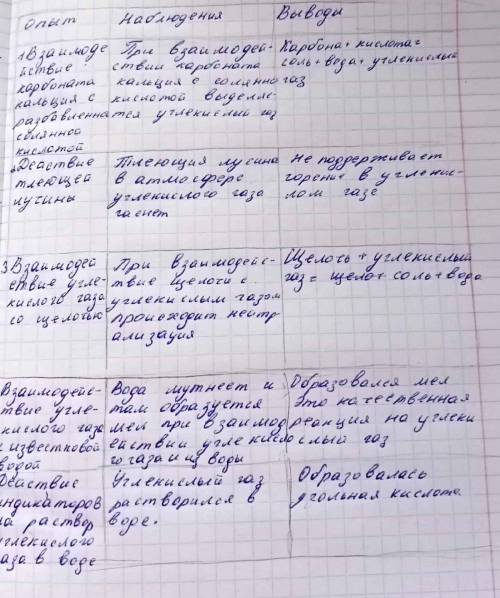 Опыт Наблюдения Выводы
1 Взаимоде
йствие
карбоната
кальция с
разбавленна
соляноо
кислотой
При взаимодей-
ствии карбоната
кальция с солянно
кислотой выделяе-
тся углекислый газ
Карбона+ кислота=
соль+вода+углекислый
газ
Действие
тлеющей
лучины
Тлеющия лусина
в атмосфере
углекислого газа
гаснет
Не поддерживает
горени в углекис-
лом газе
3 Взаимодей
ствие угле-
кислого газа
со щелочью
При взаимодейс-
твие щелочи с
углекислым газом
происходит нейтр
ализация
Щелочь + углекислый
газ = щело+ соль+вода
Взаимодейс-
твие угле-
кислого газа
с известковой
водой
Вода мутнеет и
там образуется
мел при взаимод
ействии углекисло
го газа и из воды
Образовался мел
это качественная
реакция на углеки
слый газ
Действие
индикаторов
на раствор
углекислого
газа в воде
Углекислый газ
растворился в
воде.
Образовалась
угольная кислота